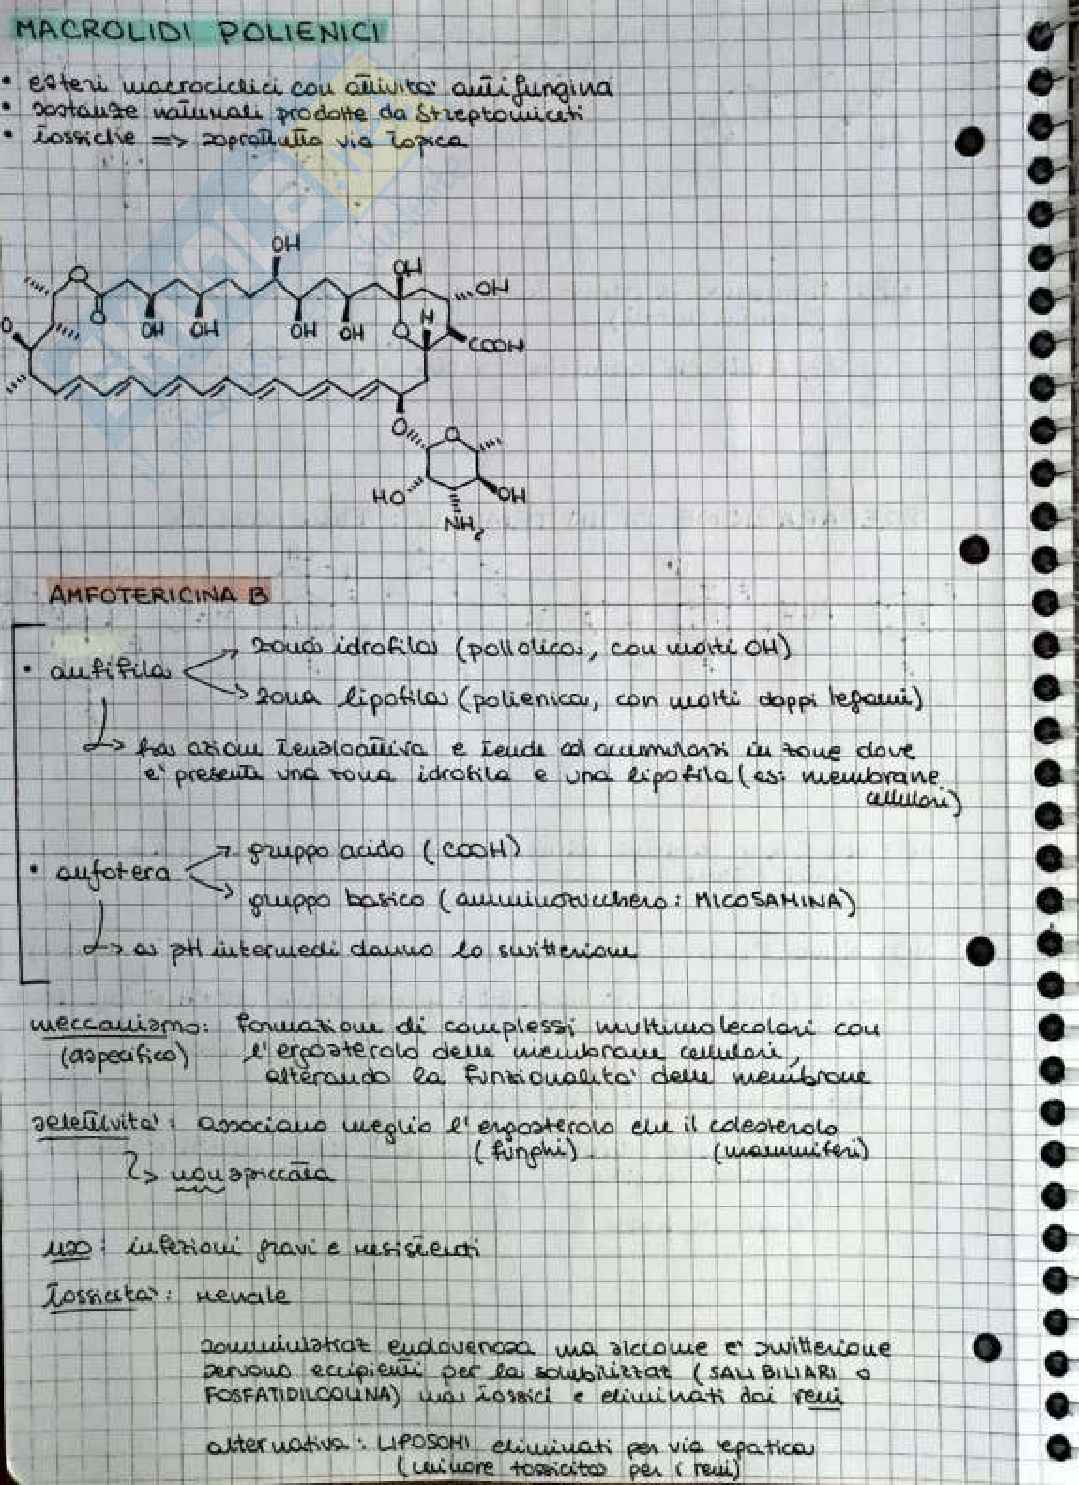 MACROLIDI POLIENICI
• esteri macrociclici con attività antifungina
• sostanze naturali prodotte da Streptomiceti
• tossiche => soprattutto via topica
OH
O
OH
OH
O
OH
OH
OH
OH
O
H
O
COOH
O
O
HO
OH
NH2
AMFOTERICINA B
• anfifila
zona idrofila (poliolica, con molti OH)
zona lipofila (polienica, con molti doppi legami)
ha azione tensioattiva e tende ad accumularsi in zone dove
e' presente una zona idrofila e una lipofila (es: membrane
cellulari)
• anfotera
gruppo acido (COOH)
gruppo basico (amminozucchero: MICOSAMINA)
a pH intermedi danno lo switterione
meccanismo: formazione di complessi multimolecolari con
(aspecifico) l'ergosterolo delle membrane cellulari,
alterando la funzionalità delle membrane
selettività: associano meglio l'ergosterolo che il colesterolo
(funghi) (mammiferi)
non spiccata
uso: infezioni gravi e resistenti
tossicità: renale
somministraz endovenosa ma siccome e' switterione
servono eccipienti per la solubilizzaz (SALI BILIARI o
FOSFATIDILCOLINA) ma tossici e eliminati dai reni
alternativa: LIPOSOMI eliminati per via epatica
(minore tossicità per i reni)